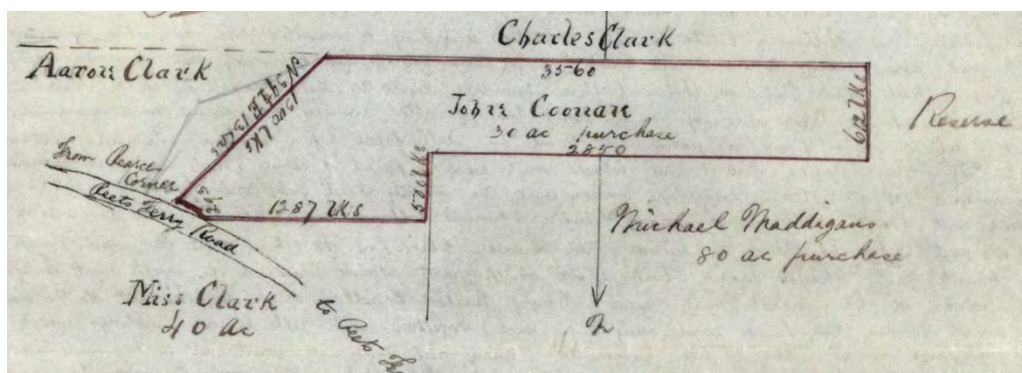 Charles Clark
Aaron Clark
3560
John Coonan
30 ac purchase
2850
612 lKs
Reserve
1300 lKs
520 lKs
1287 lKs
293
From Pearce
Corner
Peets Ferry Road
Michael Maddigans
80 ac purchase
Miss Clark
40 Ac
to Peets